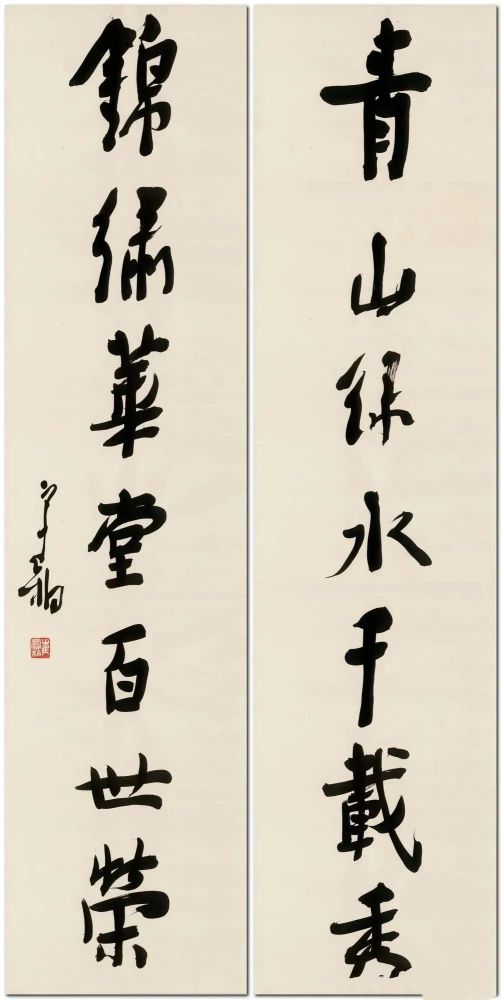 青山緑水千載秀
錦繡華堂百世榮